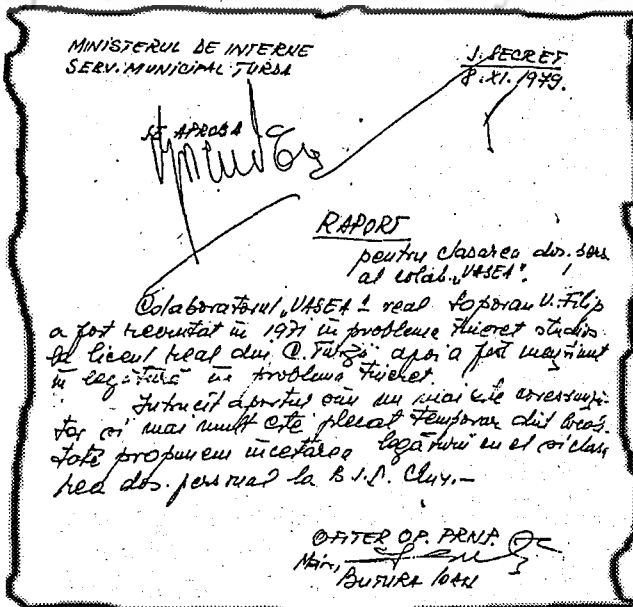 MINISTERUL DE INTERNE
SERV. MUNICIPAL TURDA
S. SECRET
8.XI.1979.
SE APROBĂ
RAPORT
pentru clasarea dos. pers.
al colab. „VASEA".
Colaboratorul „VASEA" real Toporan V. Filip
a fost recrutat în 1971 în problema tineret studios
la liceul real din C. Turzii apoi a fost menținut
în legătură în problema tineret.
Întrucît aportul său nu mai este corespunză-
tor și mai mult este plecat temporar din locali-
tate propunem încetarea legăturii cu el și clasa-
rea dos. personal la B.I.D. Cluj.-
OFIȚER OP. PRINP.
Mair,
BUTURA IOAN